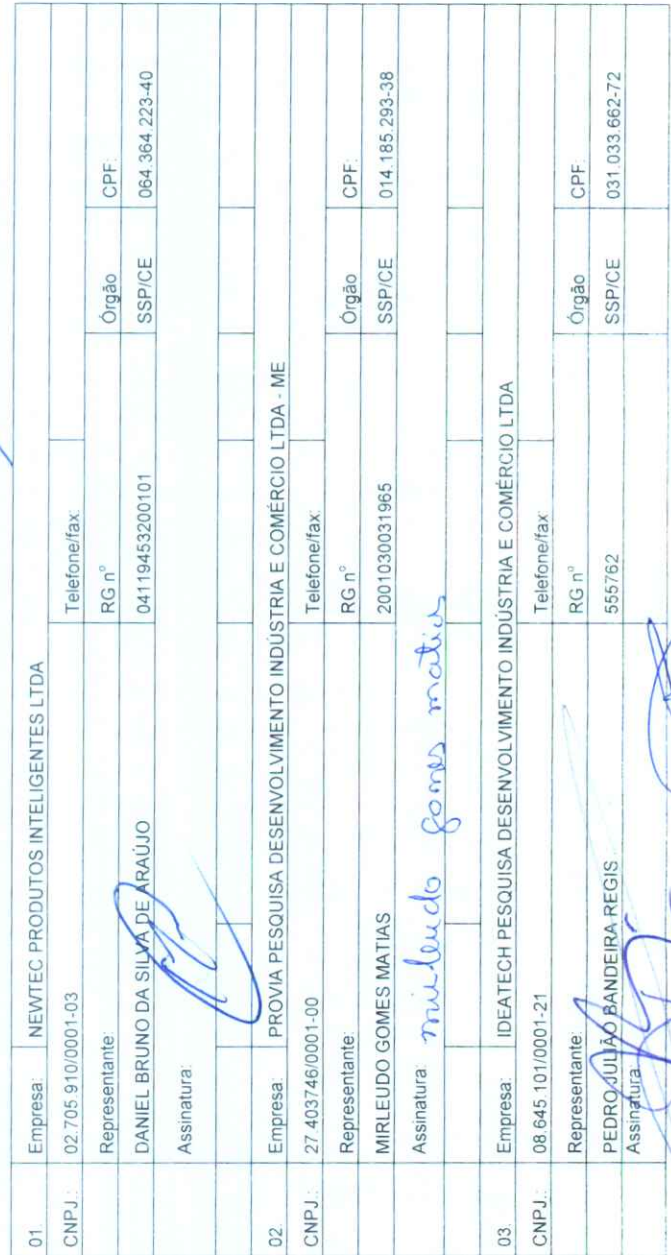 01. Empresa: NEWTEC PRODUTOS INTELIGENTES LTDA
CNPJ.: 02.705.910/0001-03 Telefone/fax:
Representante: RG nº Órgão CPF:
DANIEL BRUNO DA SILVA DE ARAÚJO 041119453200101 SSP/CE 064.364.223-40
Assinatura:
02. Empresa: PROVIA PESQUISA DESENVOLVIMENTO INDÚSTRIA E COMÉRCIO LTDA - ME
CNPJ.: 27.403746/0001-00 Telefone/fax:
Representante: RG nº Órgão CPF:
MIRLEUDO GOMES MATIAS 2001030031965 SSP/CE 014.185.293-38
Assinatura: mirleudo gomes matias
03. Empresa: IDEATECH PESQUISA DESENVOLVIMENTO INDÚSTRIA E COMÉRCIO LTDA
CNPJ.: 08.645.101/0001-21 Telefone/fax:
Representante: RG nº Órgão CPF:
PEDRO JULIÃO BANDEIRA REGIS 555762 SSP/CE 031.033.662-72
Assinatura: